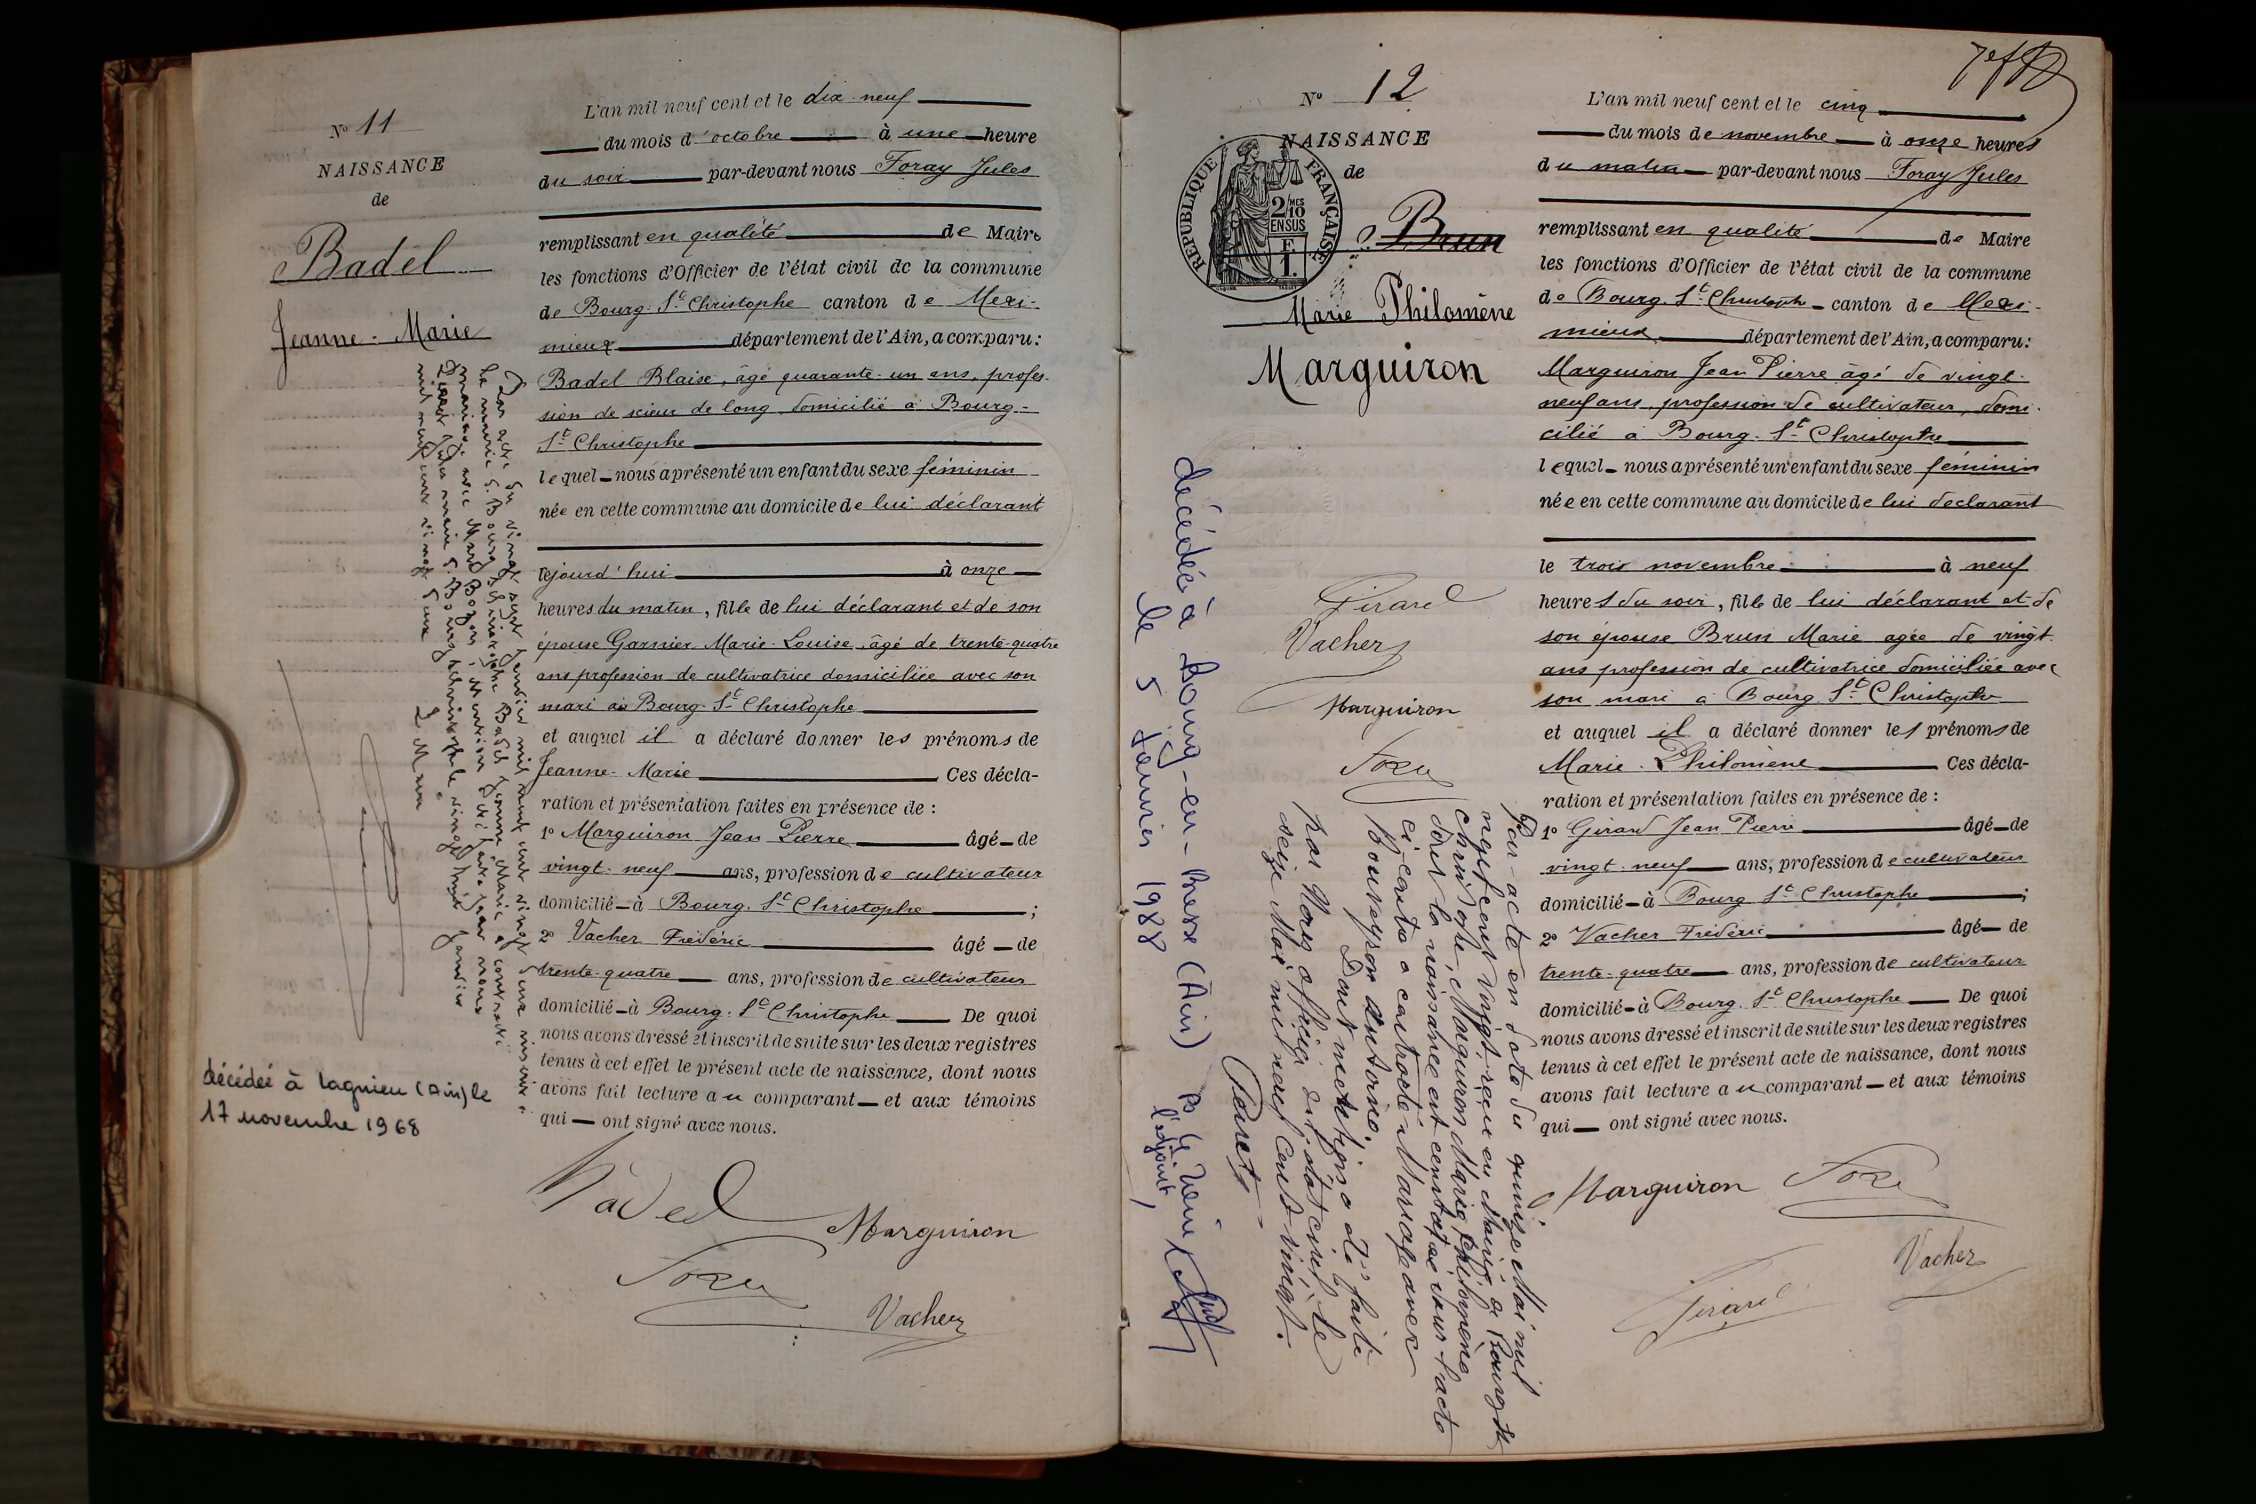 Nº 11
NAISSANCE
de
Badel
Jeanne-Marie
L'an mil neuf cent et le dix-neuf
du mois d'octobre à une heure
du soir par-devant nous Foray Jules
remplissant en qualité de Maire
les fonctions d'Officier de l'état civil de la commune
de Bourg-St Christophe canton de Mexi-
mieux département de l'Ain, a comparu:
Badel Blaise, âgé quarante-un ans, profes-
sion de scieur de long domicilié à Bourg-
St Christophe
lequel nous a présenté un enfant du sexe féminin
née en cette commune au domicile de lui déclarant
cejourd'hui à onze
heures du matin, fille de lui déclarant et de son
épouse Garnier Marie-Louise, âgé de trente-quatre
ans profession de cultivatrice domiciliée avec son
mari à Bourg-St Christophe
et auquel il a déclaré donner les prénoms de
Jeanne-Marie Ces décla-
ration et présentation faites en présence de :
1º Marguiron Jean Pierre âgé de
vingt-neuf ans, profession de cultivateur
domicilié à Bourg-St Christophe ;
2º Vacher Frédéric âgé de
trente-quatre ans, profession de cultivateur
domicilié à Bourg-St Christophe De quoi
nous avons dressé et inscrit de suite sur les deux registres
tenus à cet effet le présent acte de naissance, dont nous
avons fait lecture au comparant et aux témoins
qui ont signé avec nous.
Badel
Marguiron
Foray
Vacher
Par acte du vingt-sept janvier mil neuf cent vingt deux
la mairie de Bourg St Christophe Badel Jeanne Marie a contracté
mariage avec
mil neuf cent vingt deux
décédée à Lagnieu (Ain) le
17 novembre 1968
Nº 12
NAISSANCE
de
REPUBLIQUE FRANÇAISE
2/10 MES
EN SUS
F
1.
Brun
Marie Philomène
Marguiron
L'an mil neuf cent et le cinq
du mois de novembre à onze heures
du matin par-devant nous Foray Jules
remplissant en qualité de Maire
les fonctions d'Officier de l'état civil de la commune
de Bourg-St Christophe canton de Mexi-
mieux département de l'Ain, a comparu:
Marguiron Jean Pierre âgé de vingt-
neuf ans, profession de cultivateur, domi-
cilié à Bourg-St Christophe
lequel nous a présenté un enfant du sexe féminin
née en cette commune au domicile de lui déclarant
le trois novembre à neuf
heures du soir, fille de lui déclarant et de
son épouse Brun Marie agée de vingt
ans profession de cultivatrice domiciliée avec
son mari à Bourg St Christophe
et auquel il a déclaré donner les prénoms de
Marie-Philomène Ces décla-
ration et présentation faites en présence de :
1º Girard Jean Pierre âgé de
vingt-neuf ans, profession de cultivateur
domicilié à Bourg St Christophe ;
2º Vacher Frédéric âgé de
trente-quatre ans, profession de cultivateur
domicilié à Bourg-St Christophe De quoi
nous avons dressé et inscrit de suite sur les deux registres
tenus à cet effet le présent acte de naissance, dont nous
avons fait lecture au comparant et aux témoins
qui ont signé avec nous.
Marguiron
Foray
Vacher
Girard
Girard
Vacher
Marguiron
Foray
Par acte en date du quinze Mai mil
neuf cent vingt, reçu en Mairie de Bourg St
Christophe, Marguiron Marie Philomène
dont la naissance est constatée en l'acte
ci-contre a contracté Mariage avec
Bouveyron Antoine.
Dont mention a été faite
par Nous officier d'état civil le
seize Mai mil neuf cent vingt.
décédée à Bourg-en-Bresse (Ain)
le 5 Janvier 1988
l'adjoint,